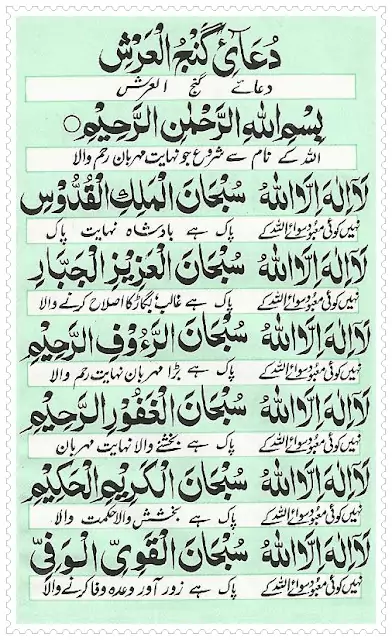 دُعَائے گَنْجُ الْعَرَشْ
دعائے گنج العرش
بِسْمِ اللهِ الرَّحْمٰنِ الرَّحِيْمِ○
اللہ کے نام سے شروع جو نہایت مہربان رحم والا
لَآ اِلٰهَ اِلَّا اللهُ سُبْحَانَ الْمَلِكِ الْقُدُّوْسِ
نہیں کوئی معبود سوائے اللہ کے پاک ہے بادشاہ نہایت پاک
لَآ اِلٰهَ اِلَّا اللهُ سُبْحَانَ الْعَزِيْزِ الْجَبَّارِ
نہیں کوئی معبود سوائے اللہ کے پاک ہے غالب بگاڑ کا اصلاح کرنے والا
لَآ اِلٰهَ اِلَّا اللهُ سُبْحَانَ الرَّءُوْفِ الرَّحِيْمِ
نہیں کوئی معبود سوائے اللہ کے پاک ہے بڑا مہربان نہایت رحم والا
لَآ اِلٰهَ اِلَّا اللهُ سُبْحَانَ الْغَفُوْرِ الرَّحِيْمِ
نہیں کوئی معبود سوائے اللہ کے پاک ہے بخشنے والا نہایت مہربان
لَآ اِلٰهَ اِلَّا اللهُ سُبْحَانَ الْكَرِيْمِ الْحَكِيْمِ
نہیں کوئی معبود سوائے اللہ کے پاک ہے بخشش والا حکمت والا
لَآ اِلٰهَ اِلَّا اللهُ سُبْحَانَ الْقَوِىِّ الْوَفِىِّ
نہیں کوئی معبود سوائے اللہ کے پاک ہے زور آور وعدہ وفا کرنے والا